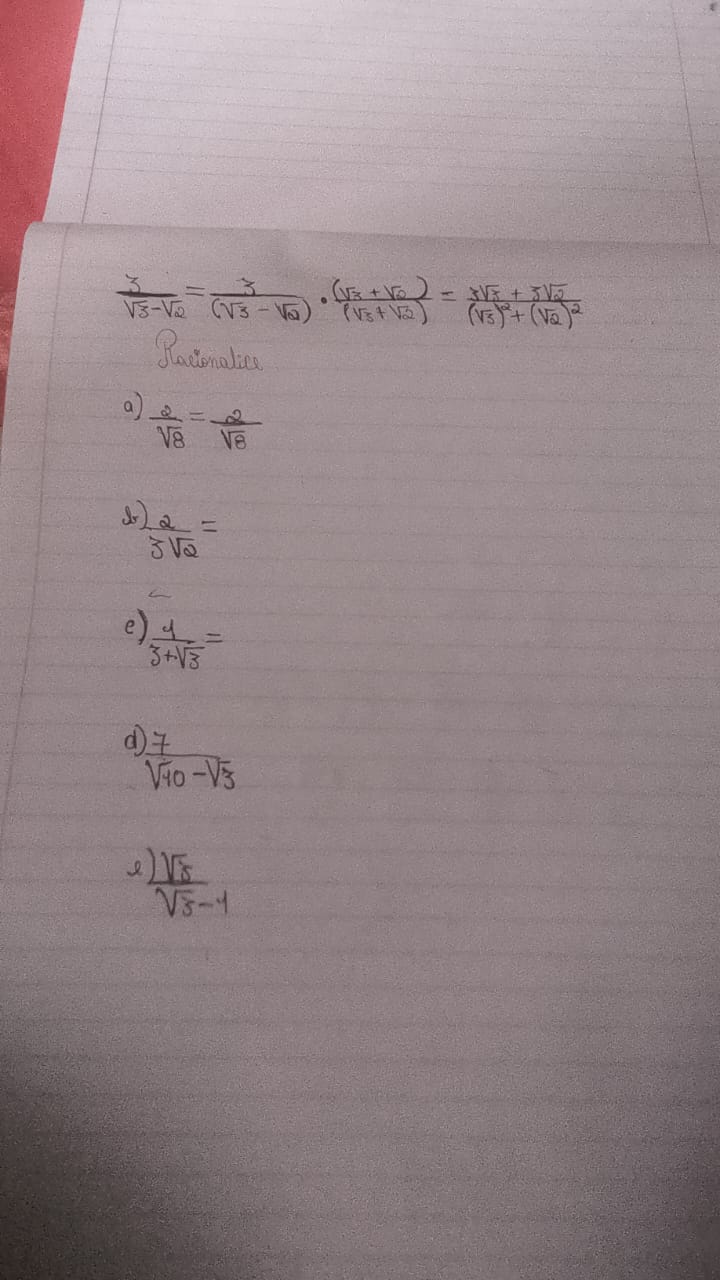 3/(√3-√2) = 3/(√3 - √2) · (√3 + √2)/(√3 + √2) = (3√3 + 3√2)/((√3)² + (√2)²)
Racionalice
a) 2/√8 = 2/√8
b) 2/(3√2) =
c) 1/(3+√3) =
d) 7/(√10 - √3)
e) √3/(√3-1)